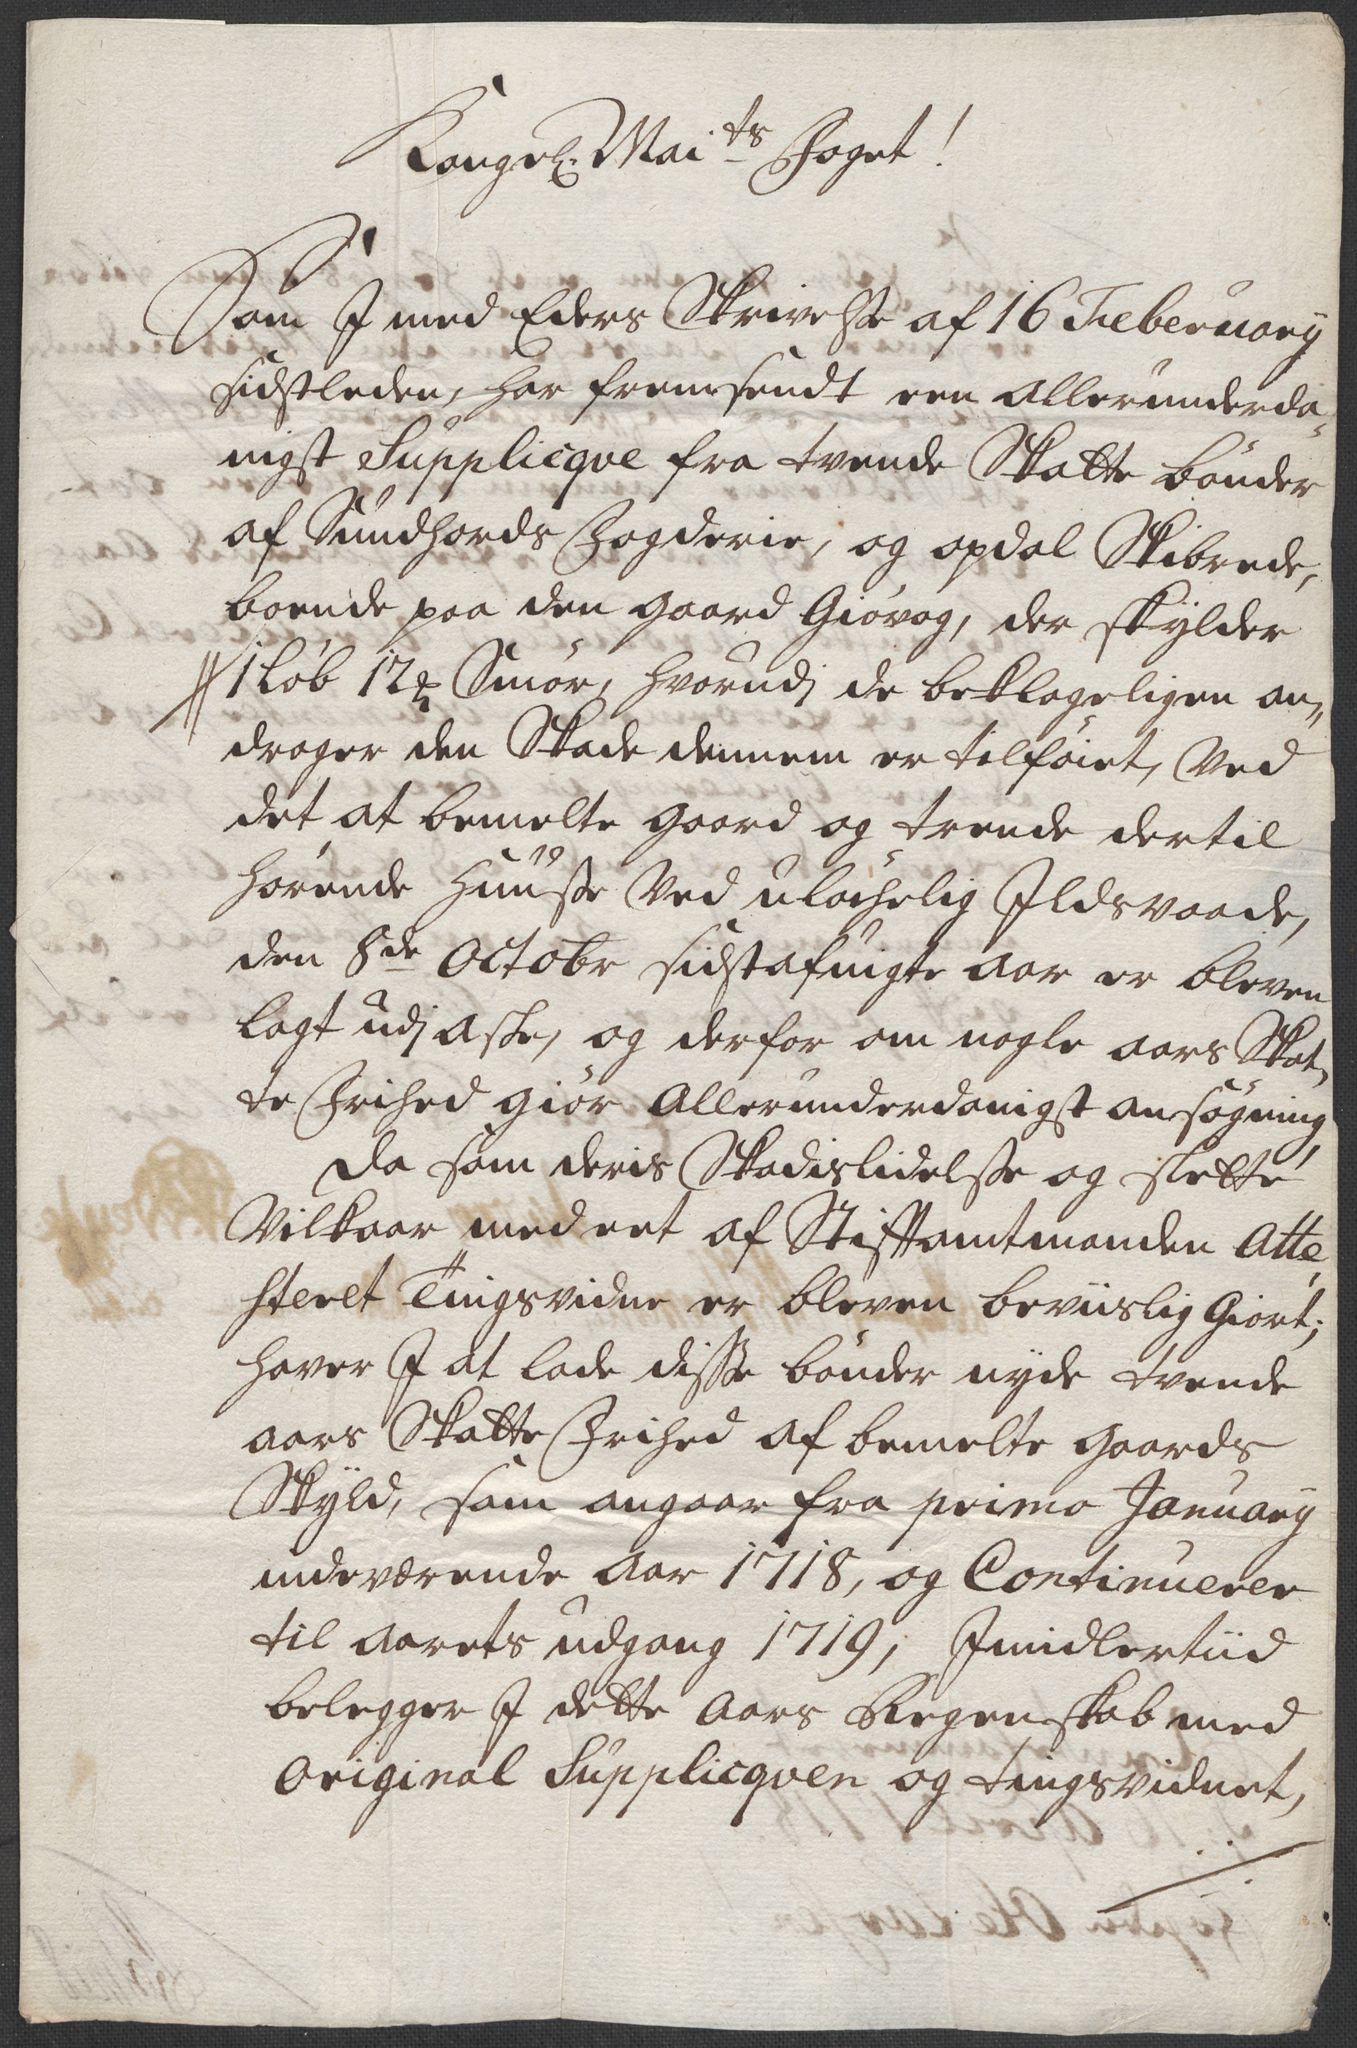 Kongel. Mai<sup>ts</sup> Foget!
Som J med Eders Skrivelse af 16 Feberuary
sidstleden, har fremsendt een Allerunderda„
nigst Supplicqve fra tvende Skatte bönder
af Sundhords Fogderie, og opdal Skibrede,
boende paa den gaard Giövog, der skylder
1 Löb 12 ℔ Smör, hvorudj de beklageligen an„
drager den Skade dennem er tilföiet, Ved
det at bemelte gaard og trende dertil
hörende Huuse Ved ulöchelig Jldsvaade,
den 8de Octobr sidstafvigte Aar er bleven
lagt udj Aske, og derfor om nogle aars Skat„
te Frihed giör Allerunderdanigst ansögning,
Da som deris Skadislidelse og slette
Vilkaar med eet af Stiftamtmanden Atte„
steret Tingsvidne er bleven beviislig Giort;
haver J at lade disse bönder nyde tvende
aars Skatte Frihed af bemelte gaards
Skyld, som angaar fra primo January
indeværende Aar 1718, og Continuerer
til Aarets udgang 1719, Jmidlertiid
belegger J dette Aars Regenskab med
Original Supplicqven og tingsvidnet,